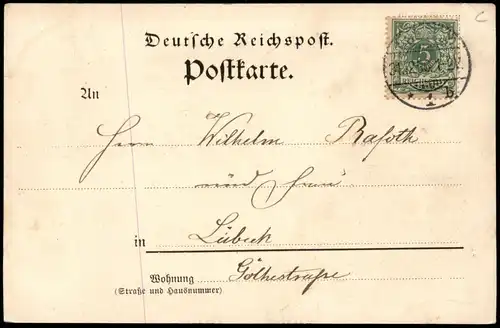 C
Deutsche Reichspost.
Postkarte.
5
An
* 1 b.
Herrn Wilhelm Rafoth
und Frau
in Lübeck
Wohnung Göthestraße
(Straße und Hausnummer)